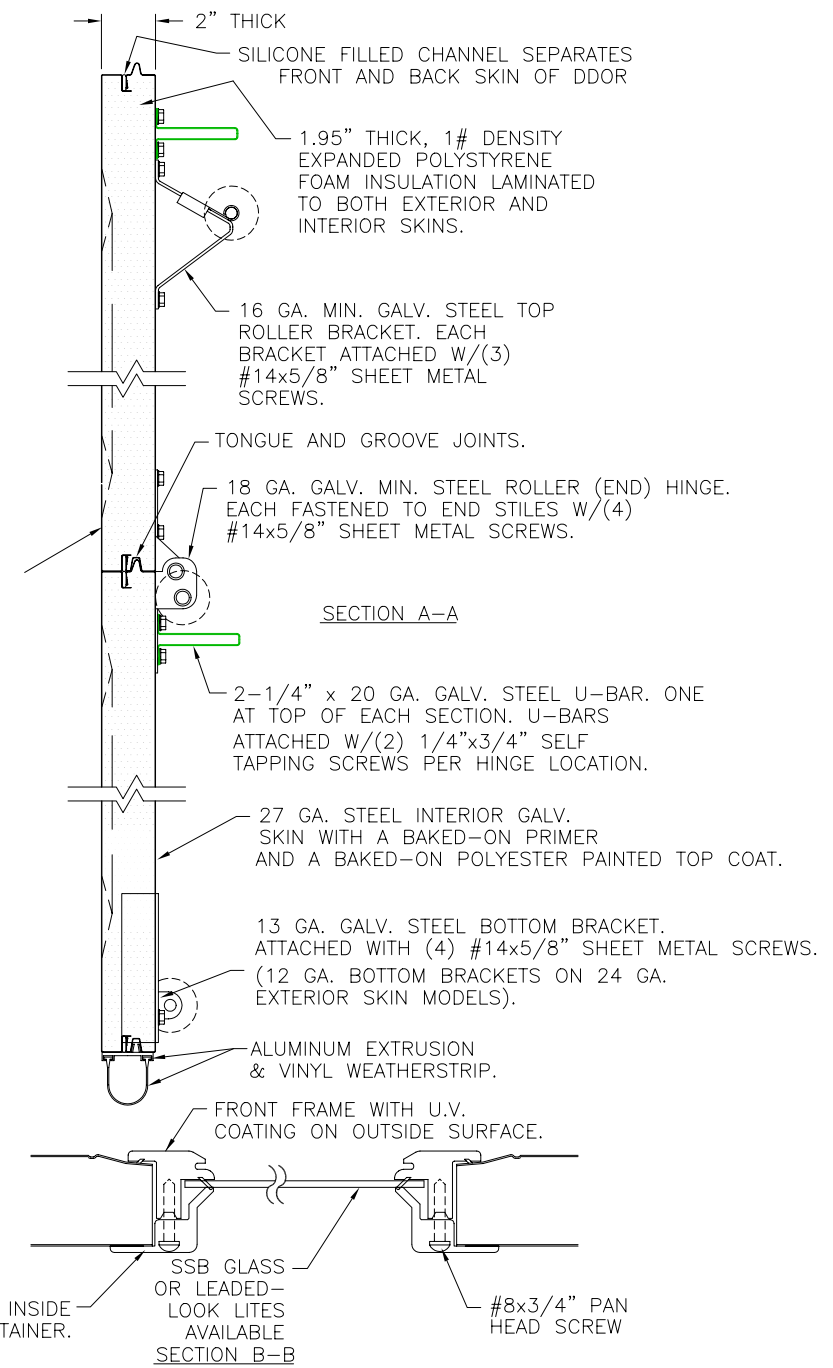 2” THICK
SILICONE FILLED CHANNEL SEPARATES
FRONT AND BACK SKIN OF DDOR
1.95” THICK, 1# DENSITY
EXPANDED POLYSTYRENE
FOAM INSULATION LAMINATED
TO BOTH EXTERIOR AND
INTERIOR SKINS.
16 GA. MIN. GALV. STEEL TOP
ROLLER BRACKET. EACH
BRACKET ATTACHED W/(3)
#14x5/8” SHEET METAL
SCREWS.
TONGUE AND GROOVE JOINTS.
18 GA. GALV. MIN. STEEL ROLLER (END) HINGE.
EACH FASTENED TO END STILES W/(4)
#14x5/8” SHEET METAL SCREWS.
SECTION A–A
2–1/4” x 20 GA. GALV. STEEL U–BAR. ONE
AT TOP OF EACH SECTION. U–BARS
ATTACHED W/(2) 1/4”x3/4” SELF
TAPPING SCREWS PER HINGE LOCATION.
27 GA. STEEL INTERIOR GALV.
SKIN WITH A BAKED–ON PRIMER
AND A BAKED–ON POLYESTER PAINTED TOP COAT.
13 GA. GALV. STEEL BOTTOM BRACKET.
ATTACHED WITH (4) #14x5/8” SHEET METAL SCREWS.
(12 GA. BOTTOM BRACKETS ON 24 GA.
EXTERIOR SKIN MODELS).
ALUMINUM EXTRUSION
& VINYL WEATHERSTRIP.
FRONT FRAME WITH U.V.
COATING ON OUTSIDE SURFACE.
SSB GLASS
OR LEADED–
LOOK LITES
AVAILABLE
SECTION B–B
INSIDE
TAINER.
#8x3/4” PAN
HEAD SCREW